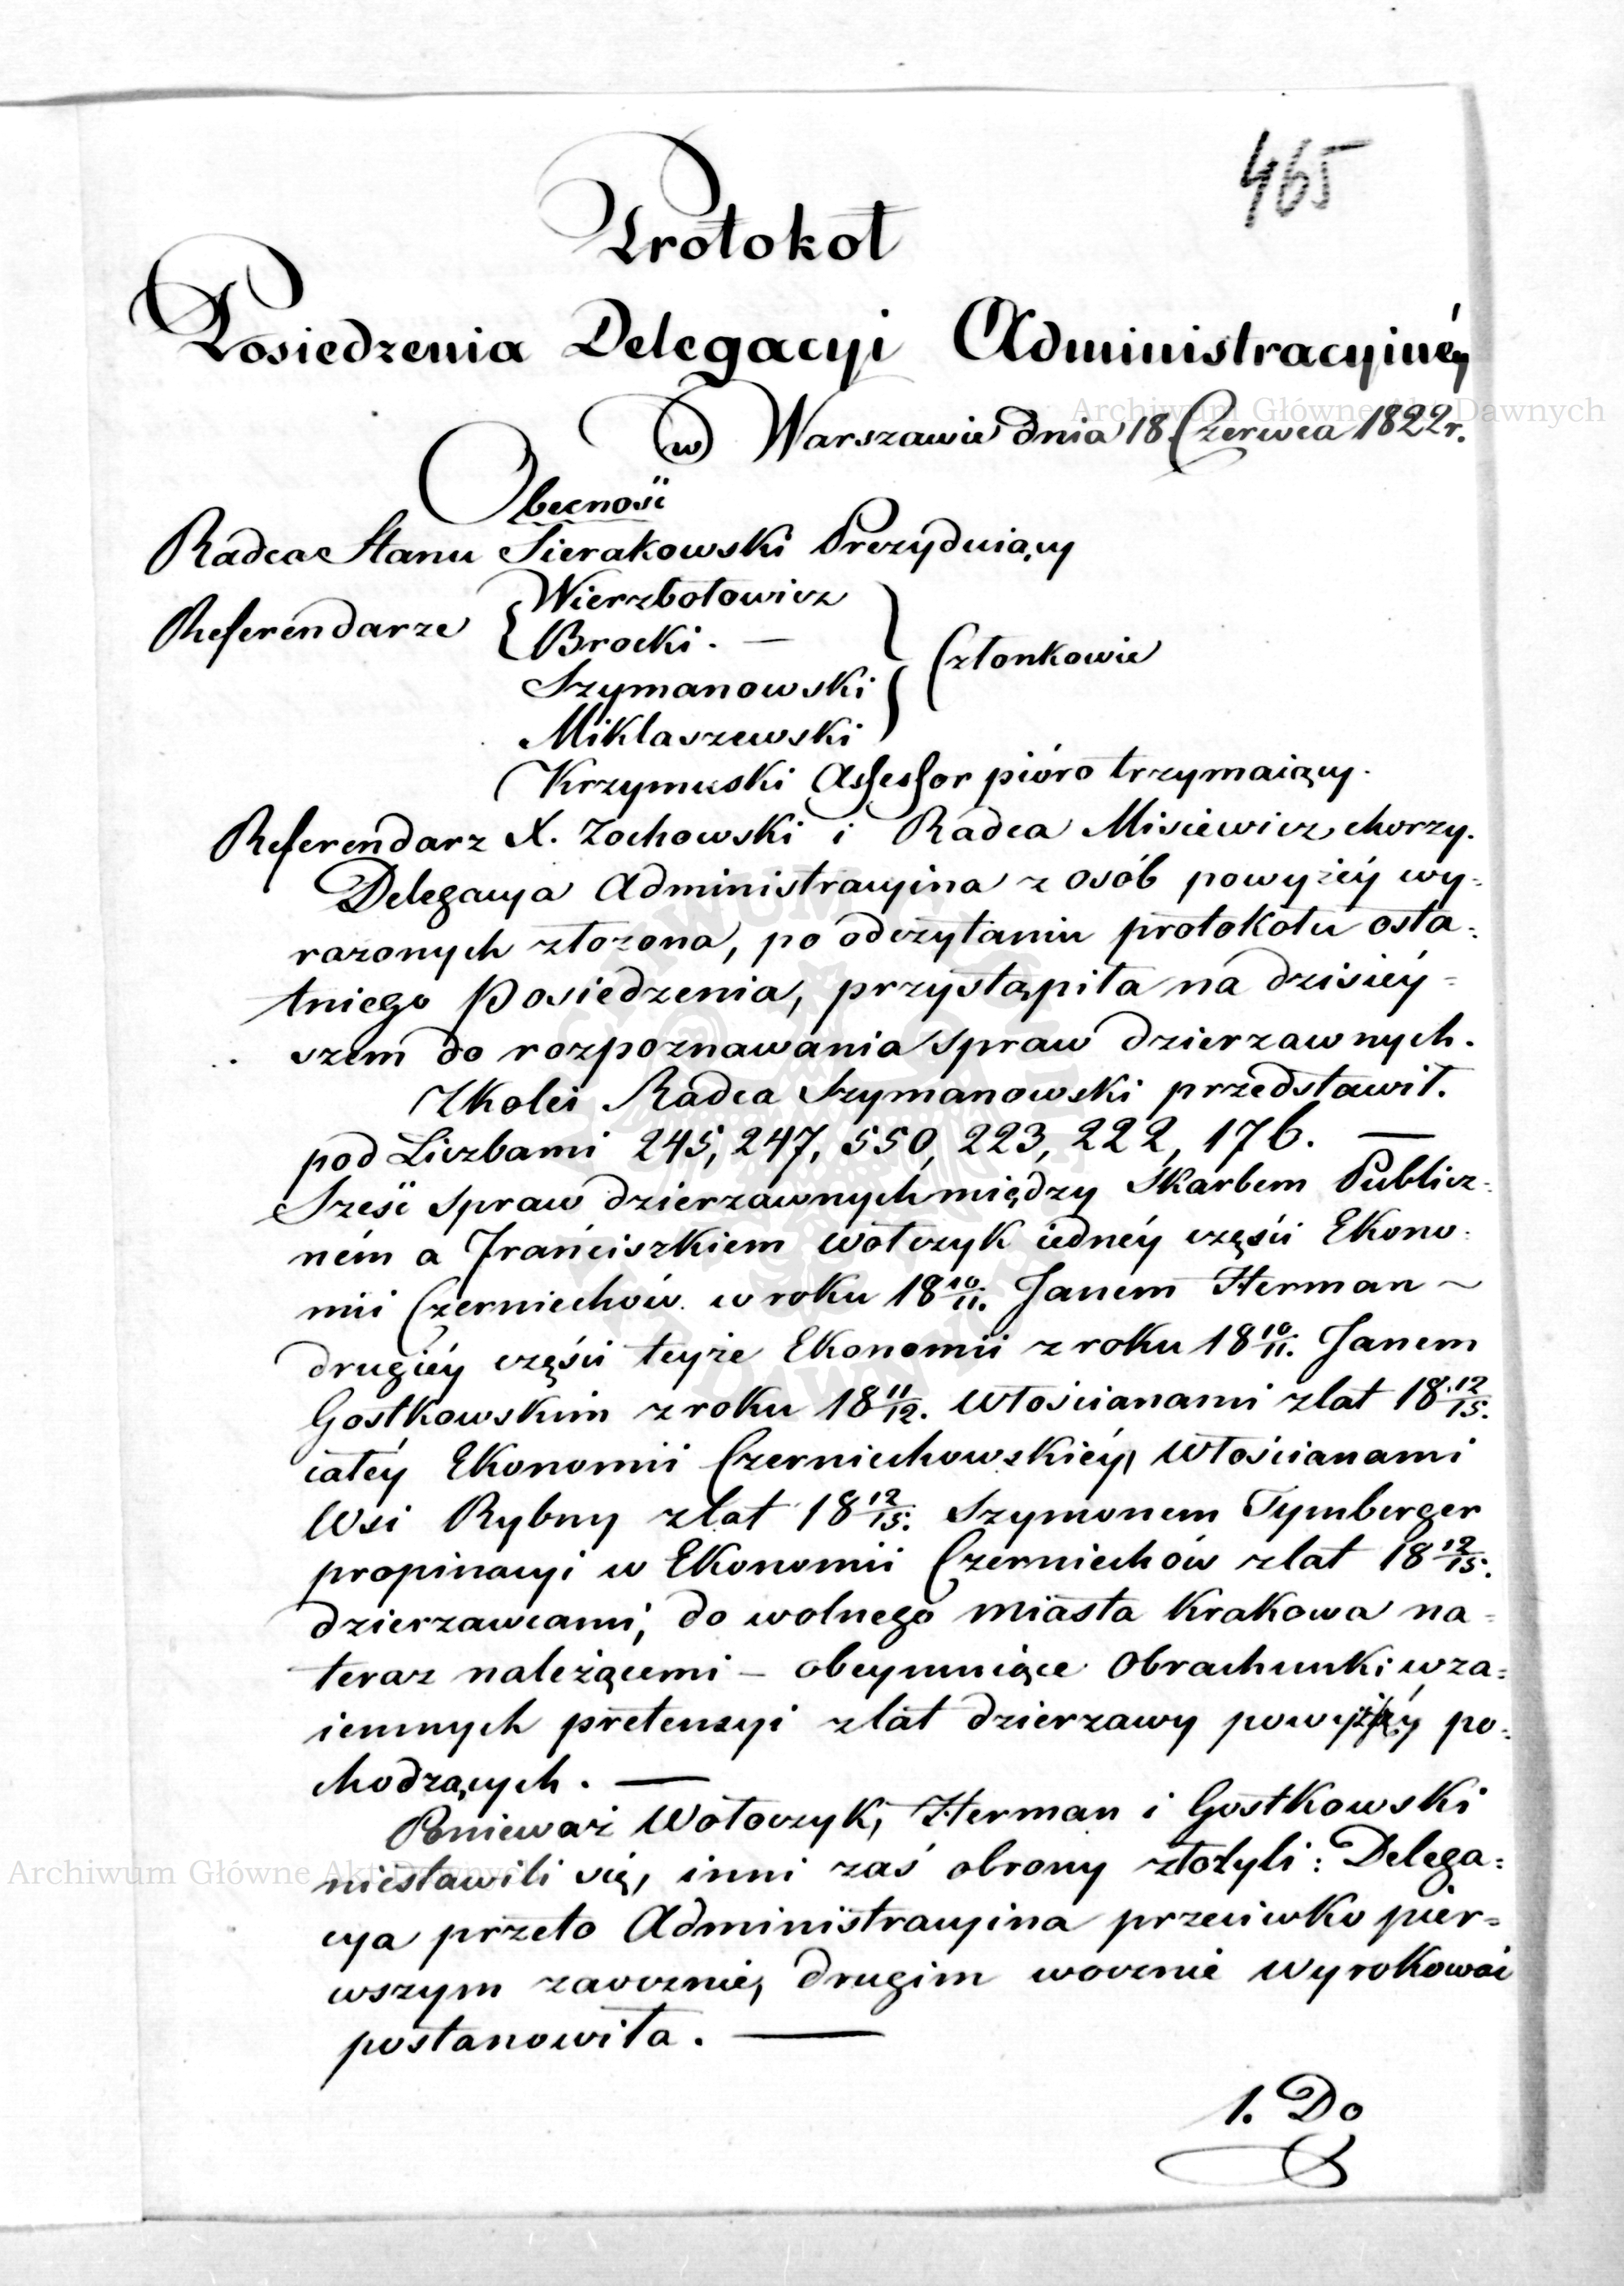 465
Protokoł
Posiedzenia Delegacyi Administracyinéy
w Warszawie dnia 18 Czerwca 1822 r.
Obecność
Radca Stanu Sierakowski Prezyduiący
Referendarze { Wierzbołowicz
Brocki. — } Członkowie
Szymanowski
Miklaszewski
Krzymuski Assessor pióro trzymaiący.
Referendarz X. Zochowski i Radca Misiewicz chorzy.
Delegacya Administracyina z osób powyżéy wy-
razonych złozona, po odczytaniu protokołu osta-
tniego Posiedzenia, przystąpiła na dzisiéy-
szem do rozpoznawania spraw dzierzawnych.
Zkolei Radca Szymanowski przedstawił.
pod Liczbami 245, 247, 550, 223, 222, 176. —
Sześć spraw dzierzawnych między Skarbem Publicz-
ném a Franciszkiem Wołczyk iednéy części Ekono-
mii Czerniechów w roku 18 10/11. Janem Herman ~
drugiéy części teyże Ekonomii z roku 18 10/11. Janem
Gostkowskim z roku 18 11/12. Włościanami z lat 18 12/15.
całéy Ekonomii Czerniechowskiéy, Włościanami
Wsi Rybny z lat 18 12/15. Szymonem Tymberger
propinacyi w Ekonomii Czerniechów z lat 18 12/15.
dzierzawcami, do wolnego miasta Krakowa na-
teraz należącemi – obeymuiące Obrachunki wza-
iemnych pretensyi z lat dzierzawy powyżéy po-
chodzących. —
Ponieważ Wołoczyk, Herman i Gostkowski
niestawili się, inni zaś obrony złożyli: Delega-
cya przeto Administracyina przeciwko pier-
wszym zaocznie, drugim woocznie wyrokować
postanowiła. —
1. Do
Archiwum Główne Akt Dawnych
Archiwum Główne Akt Dawnych